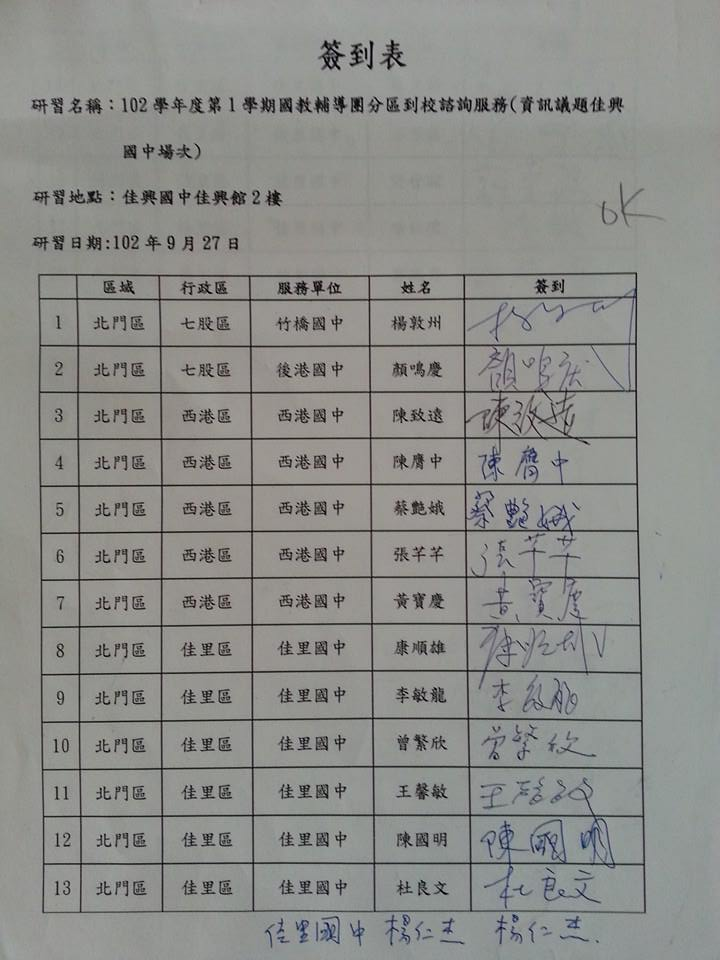 簽到表
研習名稱：102學年度第1學期國教輔導團分區到校諮詢服務(資訊議題佳興
國中場次)
研習地點：佳興國中佳興館2樓
OK
研習日期:102年9月27日
區域 行政區 服務單位 姓名 簽到
1 北門區 七股區 竹橋國中 楊敦州
2 北門區 七股區 後港國中 顏鳴慶 顏鳴慶
3 北門區 西港區 西港國中 陳致遠 陳致遠
4 北門區 西港區 西港國中 陳膺中 陳膺中
5 北門區 西港區 西港國中 蔡艷娥 蔡艷娥
6 北門區 西港區 西港國中 張芊芊 張芊芊
7 北門區 西港區 西港國中 黃寶慶 黃寶慶
8 北門區 佳里區 佳里國中 康順雄
9 北門區 佳里區 佳里國中 李敏龍 李敏龍
10 北門區 佳里區 佳里國中 曾繁欣 曾繁欣
11 北門區 佳里區 佳里國中 王馨敏 王馨敏
12 北門區 佳里區 佳里國中 陳國明 陳國明
13 北門區 佳里區 佳里國中 杜良文 杜良文
佳里國中 楊仁杰 楊仁杰